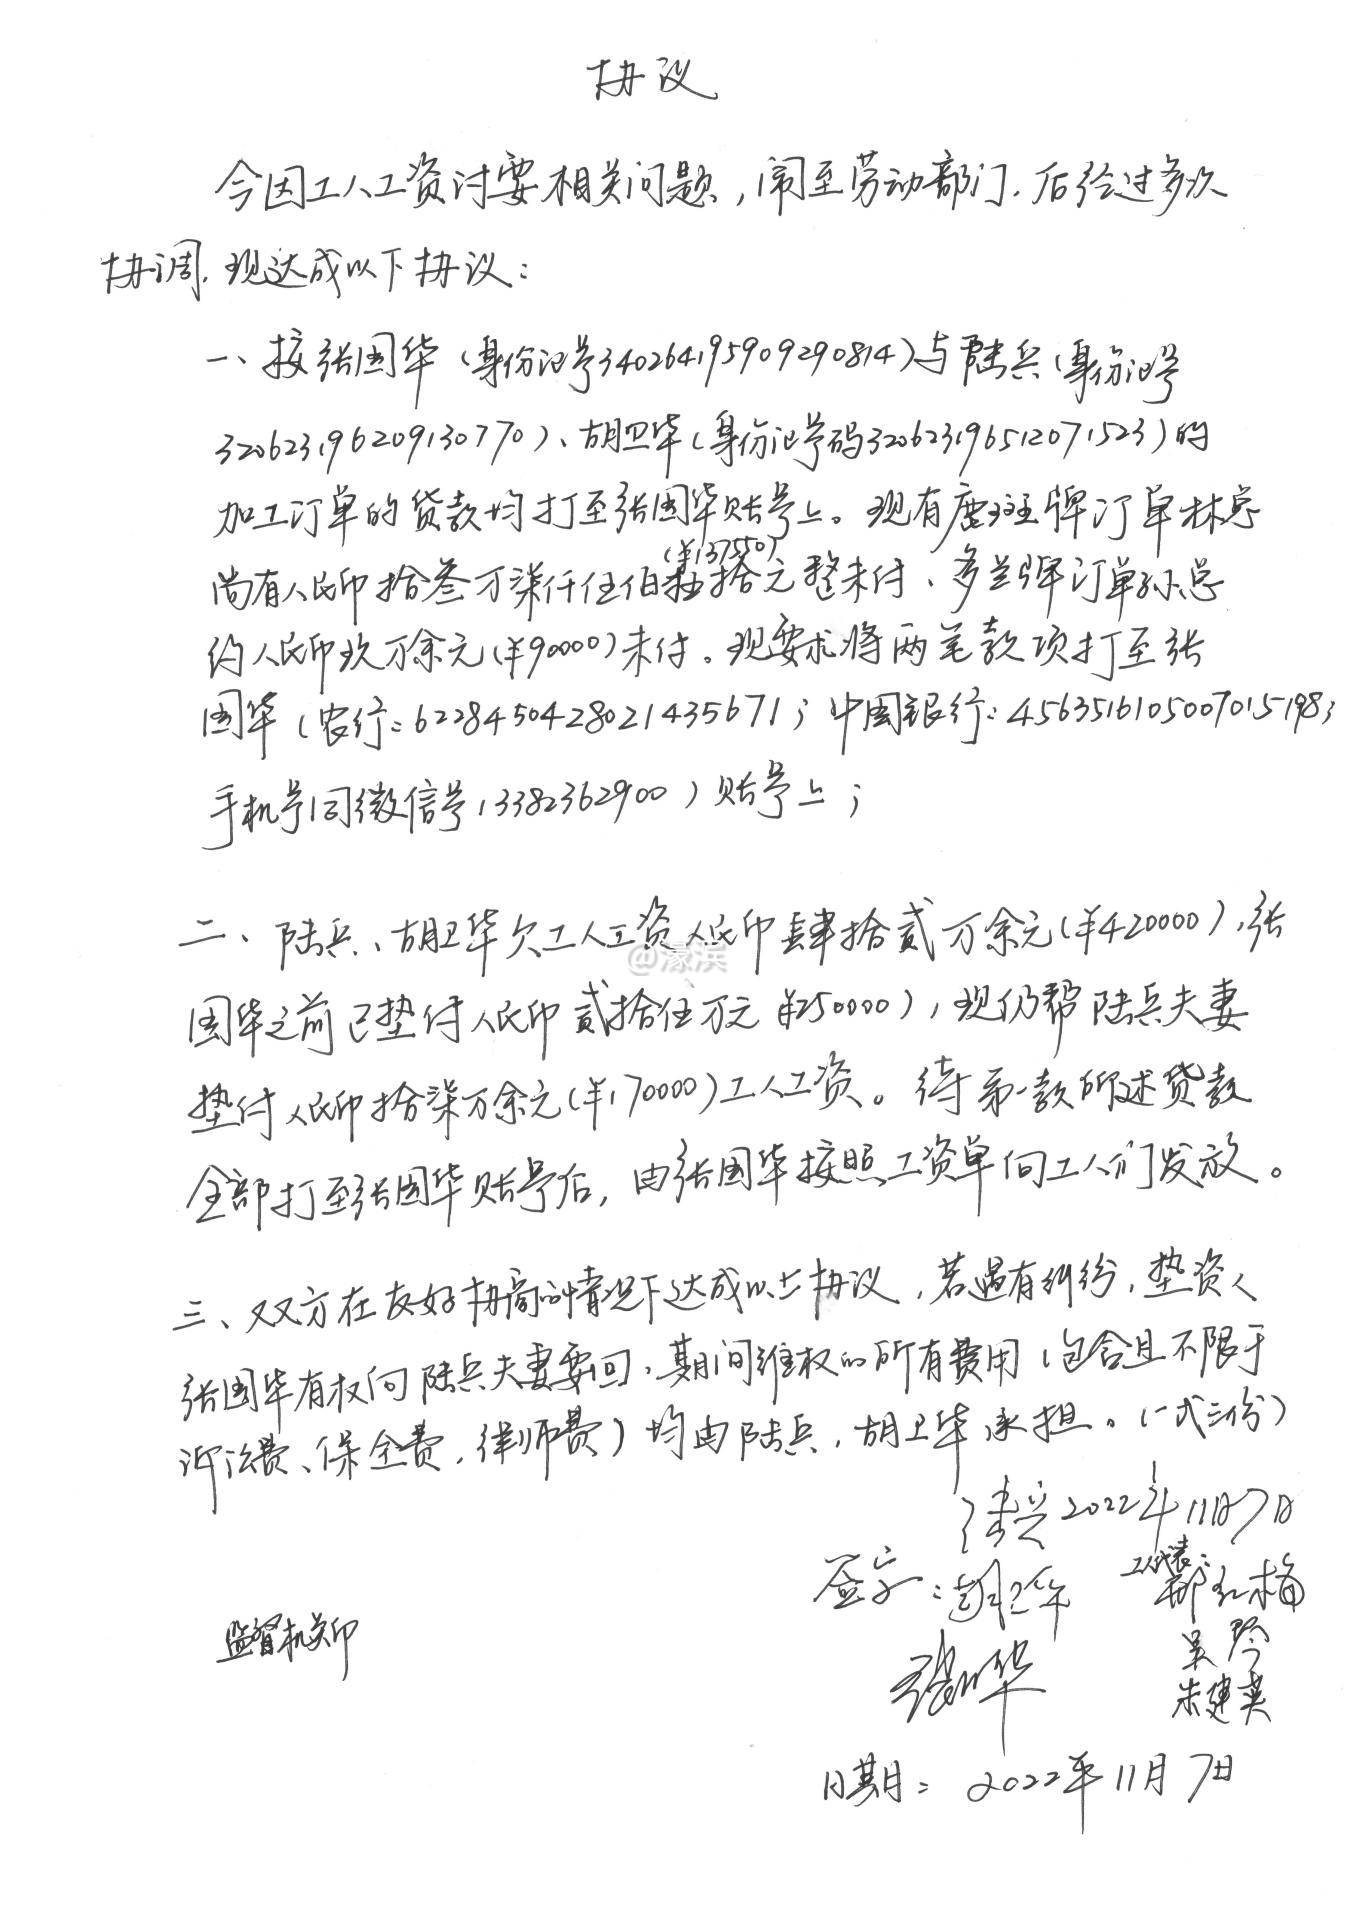 协议
今因工人工资讨要相关问题，闹至劳动部门.后经过多次
协调.现达成以下协议：
一、按张国华（身份证号340264195909290814）与陆兵（身份证号
320623196209130770）、胡卫华（身份证号码320623196512071523）的
加工订单的货款均打至张国华账号上。现有鹿斑牌订单林总
(¥137550)
尚有人民币拾叁万柒仟伍佰拾元整未付、多兰牌订单孙总
约人民币玖万余元（¥90000）未付。现要求将两笔款项打至张
国华（农行：6228450428021435671；中国银行：4563516105007015198；
手机号同微信号13382362900）账号上；
二、陆兵、胡卫华欠工人工资人民币肆拾贰万余元（¥420000），张
国华之前已垫付人民币贰拾伍万元¥250000），现仍帮陆兵夫妻
垫付人民币拾柒万余元（¥170000）工人工资。待第一款所述货款
全部打至张国华账号后，由张国华按照工资单向工人们发放。
三、双方在友好协商的情况下达成以上协议，若遇有纠纷，垫资人
张国华有权向陆兵夫妻要回，期间维权的所有费用（包含且不限于
诉讼费、保全费，律师费）均由陆兵，胡卫华承担。（一式三份）
陆兵 2022年11月7日
签字：胡卫华
工人代表：
郁红梅
张国华
吴玲
朱建英
监督机关印
日期：2022年11月7日
@濠滨